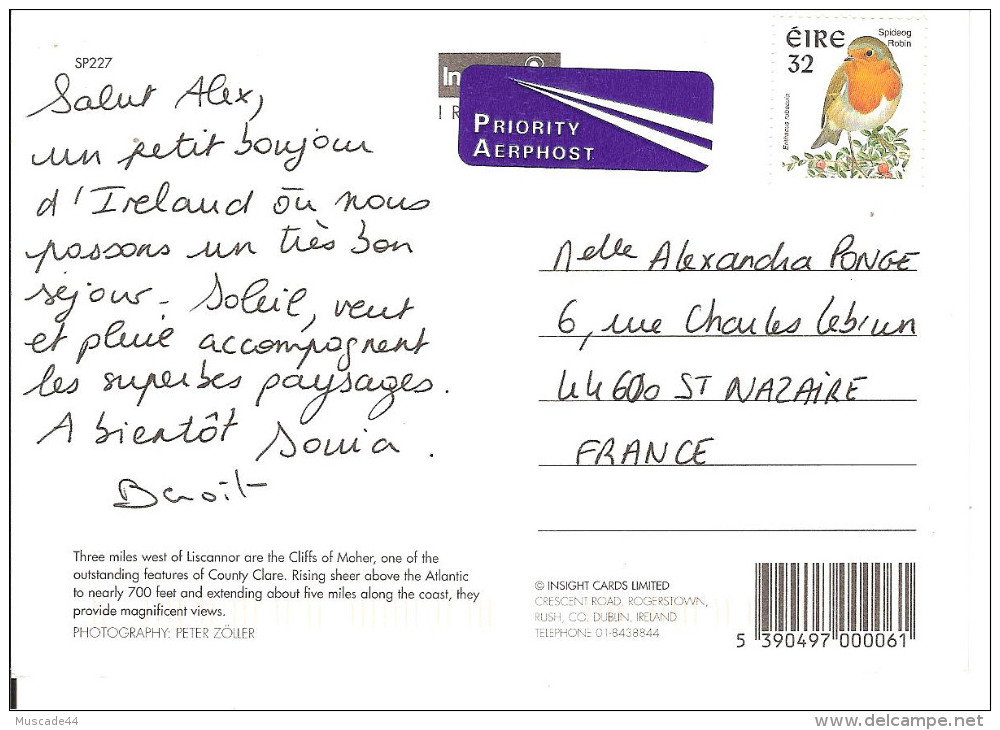 SP227
Salut Alex,
un petit bonjour
d'Ireland où nous
passons un très bon
séjour. Soleil, vent
et pluie accompagnent
les superbes paysages.
A bientôt Sonia.
Benoit
Three miles west of Liscannor are the Cliffs of Moher, one of the
outstanding features of County Clare. Rising sheer above the Atlantic
to nearly 700 feet and extending about five miles along the coast, they
provide magnificent views.
PHOTOGRAPHY: PETER ZÖLLER
PRIORITY
AERPHOST
ÉIRE
32
Spideog
Robin
Erithacus rubecula
Melle Alexandra PONGE
6, rue Charles Lebrun
44600 ST NAZAIRE
FRANCE
© INSIGHT CARDS LIMITED
CRESCENT ROAD, ROGERSTOWN,
RUSH, CO. DUBLIN, IRELAND
TELEPHONE 01-8438844
5 390497 000061
Muscade44
delcampe.net